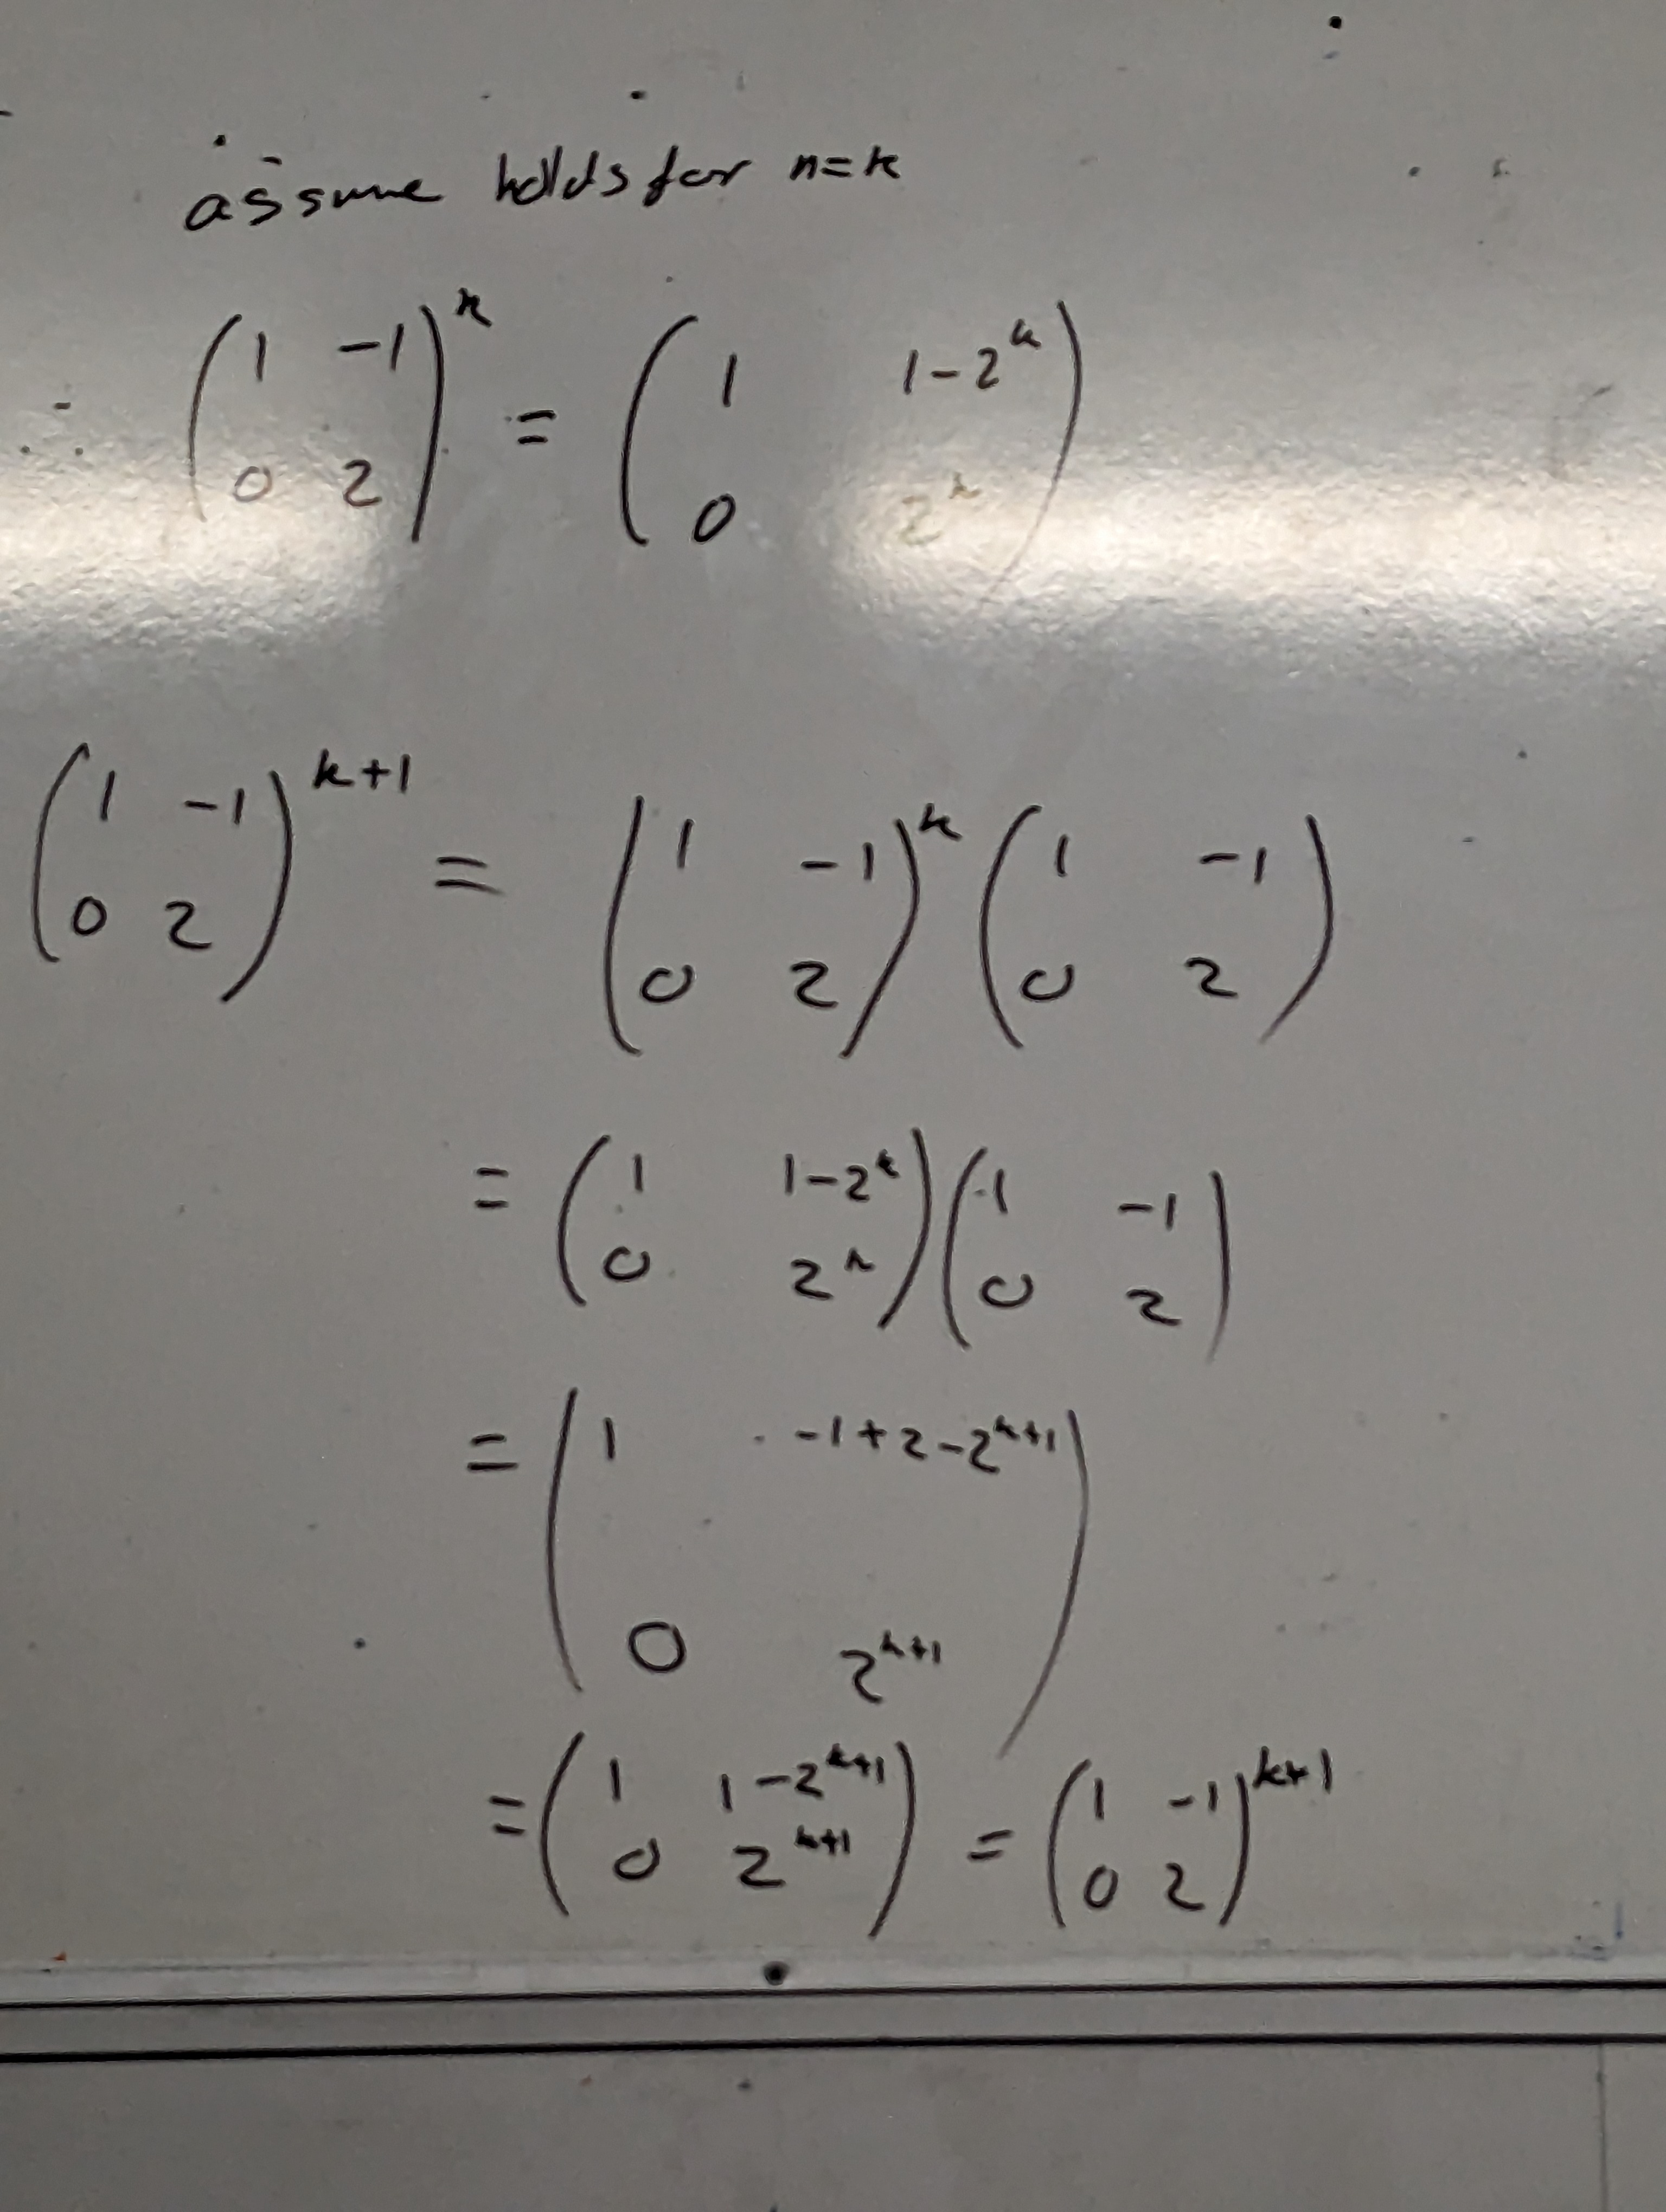 assume holds for n=k
(1 -1; 0 2)^k = (1 1-2^k; 0 2^k)
(1 -1; 0 2)^(k+1) = (1 -1; 0 2)^k (1 -1; 0 2)
= (1 1-2^k; 0 2^k)(1 -1; 0 2)
= (1 -1+2-2^(k+1); 0 2^(k+1))
= (1 1-2^(k+1); 0 2^(k+1)) = (1 -1; 0 2)^(k+1)